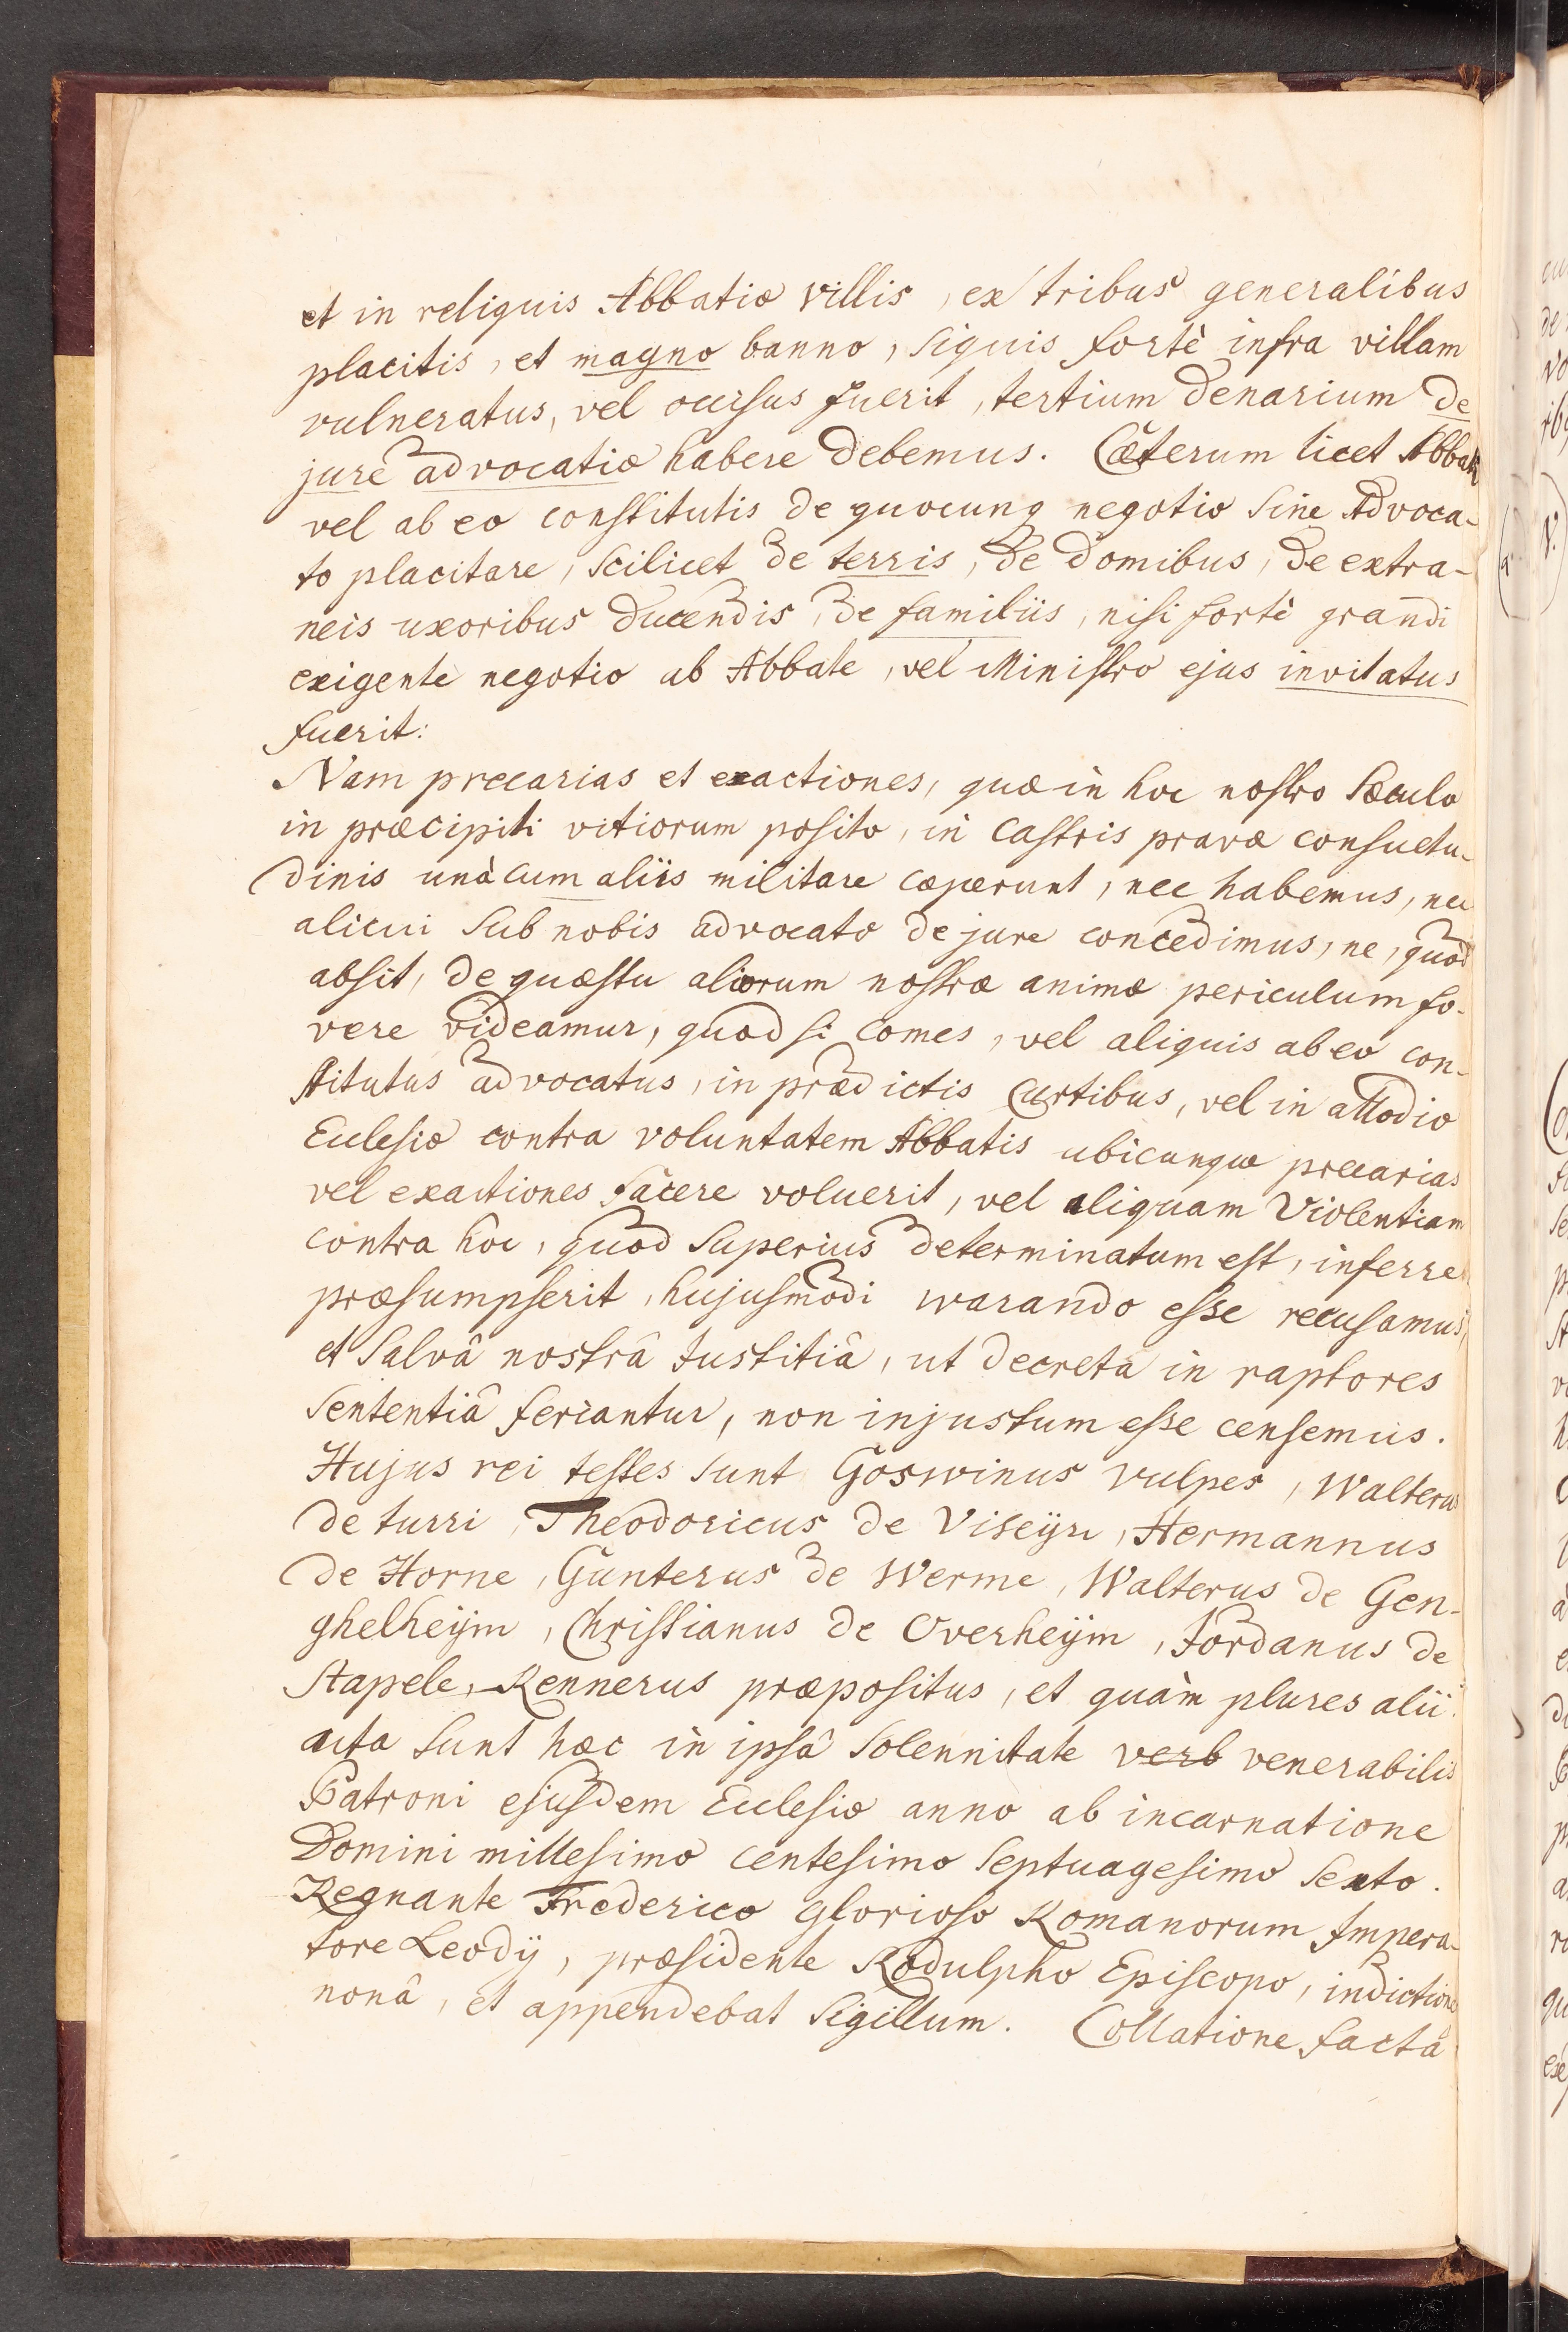 et in reliquis Abbatiæ villis, ex tribus generalibus
placitis, et magno banno, siquis fortè infra villam
vulneratus, vel occisus fuerit, tertium denarium de
jure advocatiæ habere debemus. Cæterum licet Abbati
vel ab eo constitutis de quocunq negotio sine Advoca-
to placitare, scilicet de terris, de domibus, de extra-
neis uxoribus ducendis, de familiis, nisi fortè grandi
exigente negotio ab Abbate, vel Ministro ejus invitatus
fuerit:
Nam precarias et exactiones, quæ in hoc nostro sæculo
in præcipiti vitiorum posito, in castris pravæ consuetu-
dinis unà cum aliis militare cæperunt, nec habemus, nec
alicui sub nobis advocato de jure concedimus, ne, quod
absit, de quæstu aliorum nostræ animæ periculum fo-
vere videamur, quod si comes, vel aliquis ab eo con-
stitutus advocatus, in prædictis Curtibus, vel in allodio
Ecclesiæ contra voluntatem Abbatis ubicunque precarias
vel exactiones facere voluerit, vel aliquam violentiam
contra hoc, quod superius determinatum est, inferre
præsumpserit, hujusmodi warando esse recusamus,
et salvâ nostrâ Justitiâ, ut decreta in raptores
sententiâ feriantur, non injustum esse censemus.
Hujus rei testes sunt Goswinus vulpes, Walterus
de turri, Theodoricus de Viseijr, Hermannus
de Horne, Gunterus de Werme, Walterus de Gen-
ghelheijm, Christianus de Overheijm, Jordanus de
Stapele, Rennerus præpositus, et quàm plures alii.
acta sunt hæc in ipsâ solennitate verb venerabilis
Patroni ejusdem Ecclesiæ anno ab incarnatione
Domini millesimo centesimo septuagesimo sexto.
Regnante Frederico glorioso Romanorum Impera-
tore Leodij, præsidente Rodulpho Episcopo, indictione
nonâ, et appendebat sigillum. Collatione factâ